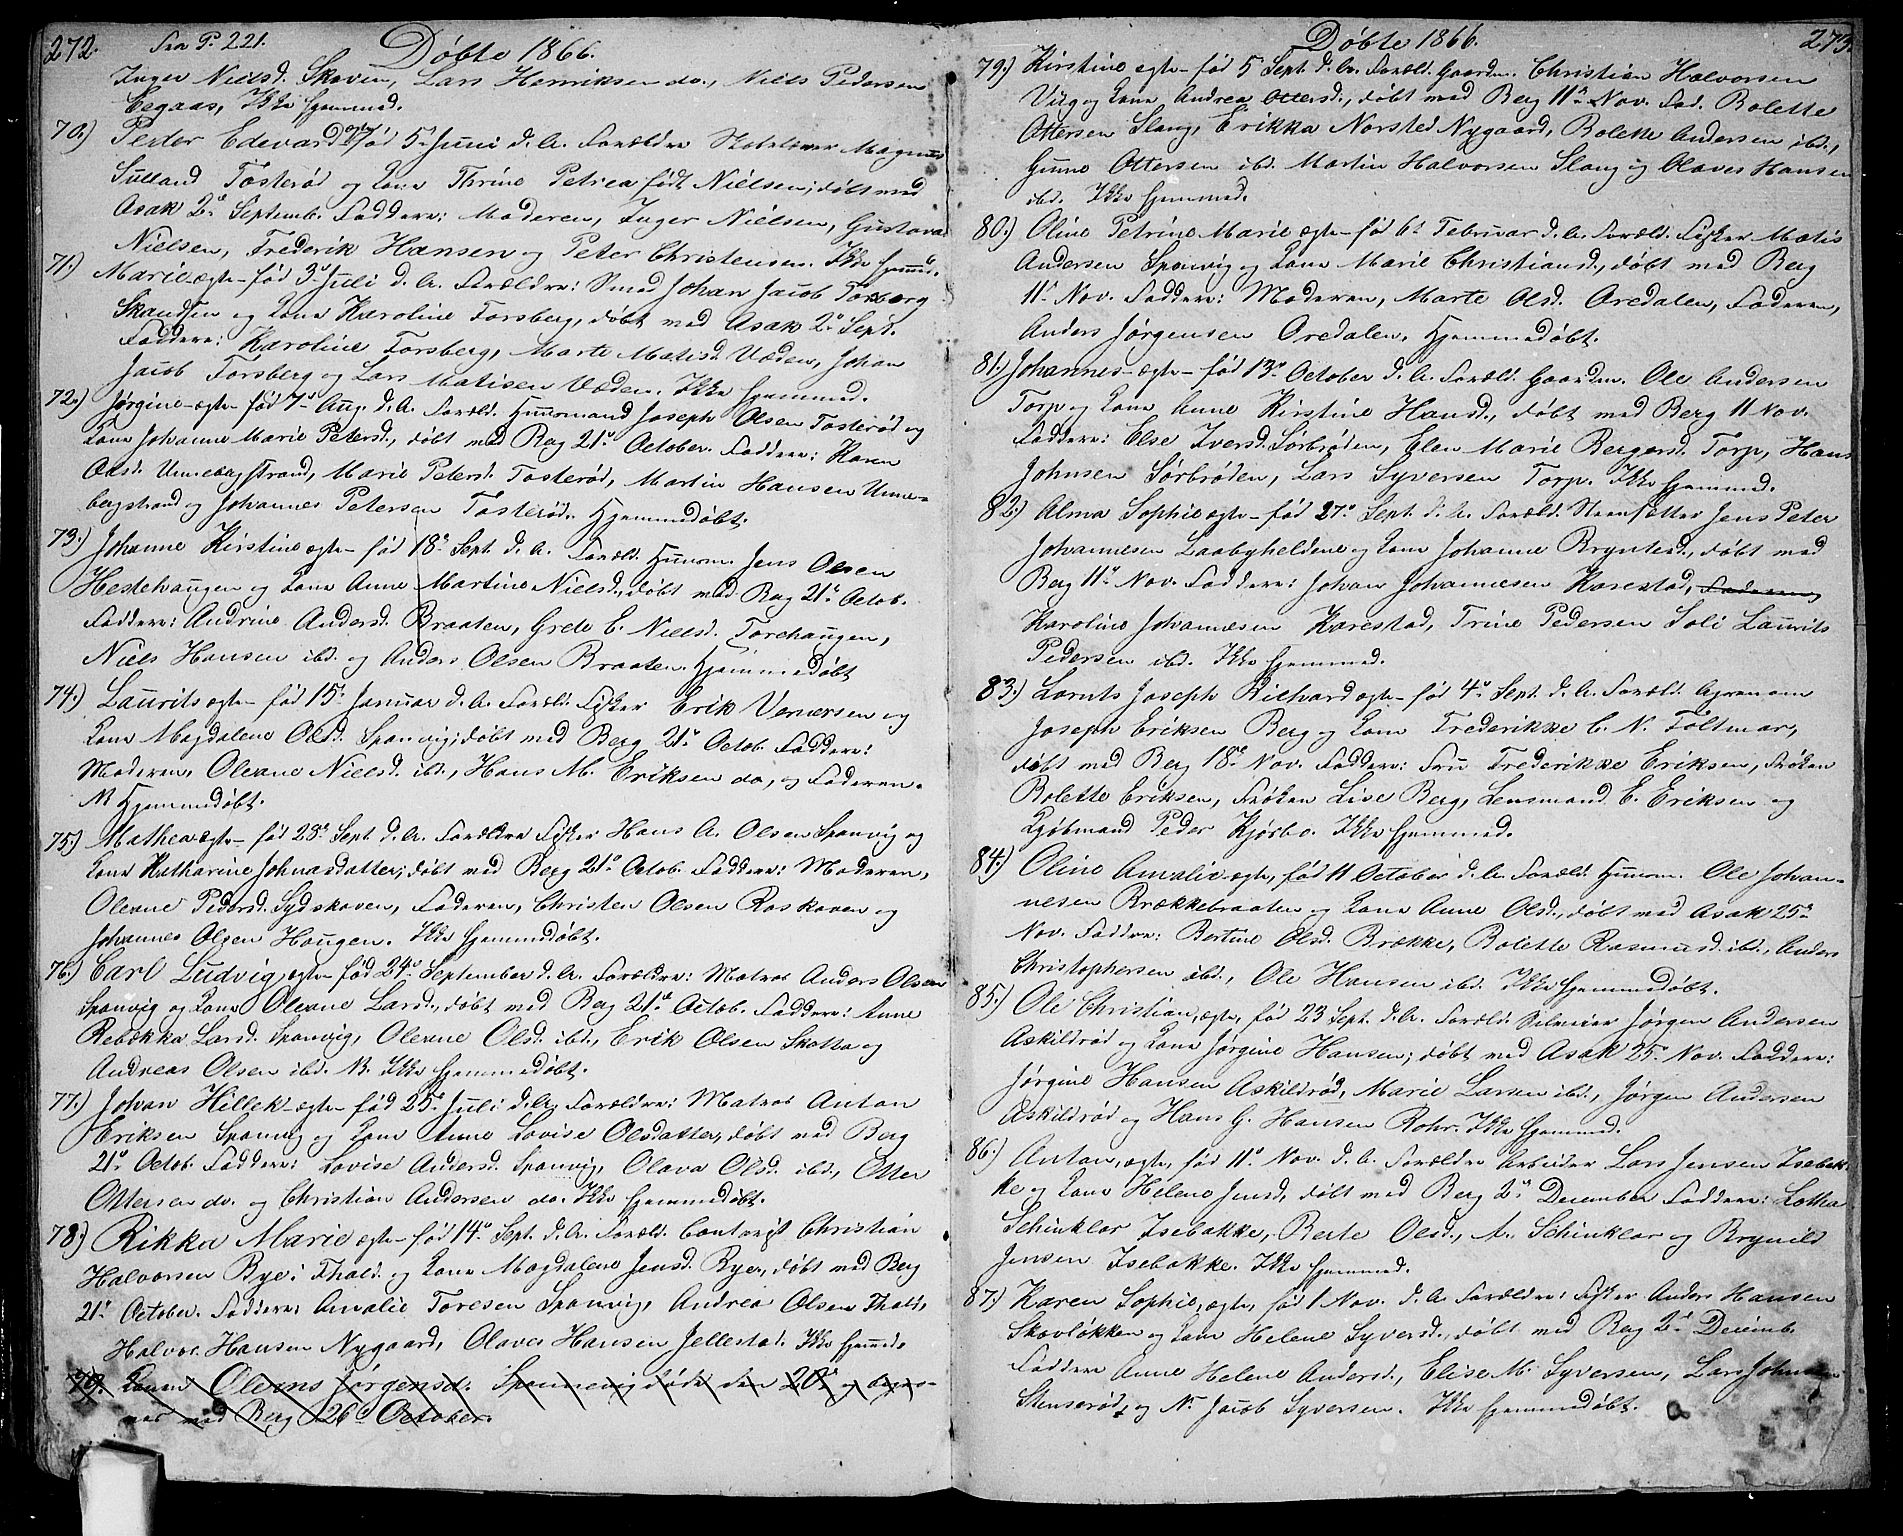 272. Fra P. 221. Døbte 1866.
Inger Nielsd. Skoven, Lars Henriksen do., Niels Pedersen
Eegaas, Ikke hjemmed.
70.) Peder Edevard ægte født 5te Juni d. A. Forældre Skoelærer Magnus
Sulland Tosterød og Kone Thrine Petrea født Nielsen; døbt med
Asak 2d Septemb. Faddere: Moderen, Inger Nielsen, Gustava
Nielsen, Frederik Hansen og Peter Christensen. Ikke hjemd.
71.) Marie ægte født 3d Juli d. A. Forældre: Smed Johan Jacob Forsberg
Skandsen og Kone Karoline Forsberg, døbt med Asak 2d Sept.
Faddere: Karoline Forsberg, Marte Matisd. Væden, Johan
Jacob Forsberg og Lars Matisen Væden. Ikke hjemmed.
72.) Jørgine ægte født 7de Aug. d. A. Foræld. Huusmand Joseph Olsen Tosterød og
Kone Johanne Marie Petersd., døbt med Berg 21d October. Faddere: Karen
Olsd. Unnebergstrand, Marie Petersd. Tosterød, Martin Hansen Unne-
bergstrand og Johannes Petersen Tosterød. Hjemmedøbt.
73.) Johanne Kirstine ægte født 18d Sept. d. A. Foræld. Huusm. Jens Olsen
Hestehaugen og Kone Anne Martine Nielsd., døbt med Berg 21d Octob.
Faddere: Andrine Andersd. Braaten, Grete E. Nielsd. Torehaugen,
Niels Hansen ibd. og Anders Olsen Braaten. Hjemmedøbt
74.) Laurits ægte født 15de Januar d. A. Foræld. Fisker Erik Vernersen og
Kone Magdalene Olsd. Sponvig; døbt med Berg 21d Octob. Faddere:
Moderen, Oleane Nielsd. ibd., Hans M. Eriksen do, og Faderen.
M Hjemmedøbt.
75.) Mathea ægte født 23d Sept. d. A. Forældre Fisker Hans A. Olsen Sponvig og
Kone Katharine Johnasdatter; døbt med Berg 21d Octob. Faddere: Moderen,
Oleane Pedersd. Sydskoven, Faderen, Christen Olsen Roskoven og
Johannes Olsen Haugen. Ikke hjemmedøbt.
76.) Carl Ludvig, ægte født 24d September d. A. Forældre: Matros Anders Olsen
Sponvig og Kone Oleane Larsd., døbt med Berg 21d Octob. Faddere: Anne
Rebækka Larsd. Sponvig, Oleane Olsd. ibd., Erik Olsen Skotta og
Andreas Olsen ibd. Ikke hjemmedøbt.
77.) Johan Hillek ægte født 25d Juli d. A. Forældre: Matros Anton
Eriksen Sponvig og Kone Anne Lovise Olsdatter, døbt med Berg
21d Octob. Faddere: Lovise Andersd. Sponvig, Olava Olsd. ibd., Otter
Ottersen do. og Christian Andersen do. Ikke hjemmedøbt.
78.) Rikka Marie ægte født 14d Sept. d. A. Foræld. Contorist Christian
Halvorsen Bye i Fhald. og Kone Magdalene Jensd. Byer, døbt med Berg
21d October. Faddere: Amalie Toresen Sponvig, Andrea Olsen Fhald,
Halvor Hansen Nygaard, Olaves Hansen Jellestad. Ikke hjemmed.
79. Konen Oleans Jørgensd. Sponnevig døde den 20d og begra-
ves med Berg 26d October.
Døbte 1866. 273.
79.) Kirstine ægte født 5 Sept. d. A. Foræld. Gaardm. Christian Halvorsen
Viig og Kone Andrea Ottersd., døbt med Berg 11te Nov. Fad. Bolette
Ottersen Slang, Erikka Norsted Nygaard, Bolette Andersen ibd.,
Gunne Ottersen ibd. Martin Halvorsen Slang og Olaves Hansen
ibd. Ikke hjemmed.
80.) Oline Petrine Marie ægte født 6te Februar d. A. Foræld. Fisker Matis
Andersen Sponvig og Kone Marie Christiansd., døbt med Berg
11te Nov. Faddere: Moderen, Marte Olsd. Oredalen, Faderen,
Anders Jørgensen Oredalen. Hjemmedøbt.
81.) Johannes ægte født 13d October d. A. Foræld. Gaardm. Ole Andersen
Torp og Kone Anne Kirstine Hansd., døbt med Berg 11 Nov.
Faddere: Else Iversd. Sørbrøden, Elen Marie Bergersd. Torp, Hans
Johnsen Sørbrøden, Lars Syversen Torp. Ikke hjemmed.
82.) Alma Sophie ægte født 27d Sept. d. A. Foræld. Steenhætter Jens Peter
Johannesen Laabyheldene og Kone Johanne Bryntesd., døbt med
Berg 11te Nov. Faddere: Johan Johannesen Karrestad, Faderen,
Karoline Johannesen Karestad, Trine Pedersen Soli Laurits
Pedersen ibd. Ikke hjemmed.
83.) Lornts Joseph Richard ægte født 4d Sept. d. A. Foræld. Agronom
Joseph Eriksen Berg og Kone Frederikke C. N. Foltmar,
døbt med Berg 18d Nov. Faddere: Fru Frederikke Eriksen, Frøken
Bolette Eriksen, Frøken Live Berg, Lensmand E. Eriksen og
Kjøbmand Peder Kjørbo. Ikke hjemmed.
84.) Oline Amalie ægte, født 11 October d. A. Foræld. Huusm. Ole Johan-
nesen Brækkebraaten og Kone Anne Olsd., døbt med Asak 25d
Nov. Faddere: Bertine Olsd. Brække, Bolette Rasmusd. ibd., Anders
Christophersen ibd., Ole Hansen ibd. Ikke hjemmedøbt.
85.) Ole Christian, ægte, født 23 Sept. d. A. Foræld. Selveier Jørgen Andersen
Askildrød og Kone Jørgine Hansen; døbt med Asak 25d Nov. Faddere:
Jørgine Hansen Askildrød, Marie Larsen ibd., Jørgen Andersen
Askildrød og Hans G. Hansen Rohr. Ikke hjemmed.
86.) Anton, ægte, født 11d Nov. d. A. Forældre Arbeider Lars Jensen Isebak-
ke og Kone Helene Jensd., døbt med Berg 2d December Faddere: Lotha
Schinkler Isebakke, Berte Olsd., A. Schinkler og Brynild
Jensen Isebakke. Ikke hjemmed.
87.) Karen Sophie, ægte, født 1 Nov. d. A. Forældre: Fisker Anders Hansen
Skovløkken og Kone Helene Syversd., døbt med Berg 2d Decemb.
Faddere Anne Helene Andersd., Elise M. Syversen, Lars Johnsen
Stenserød, og N. Jacob Syversen. Ikke hjemmedøbt.